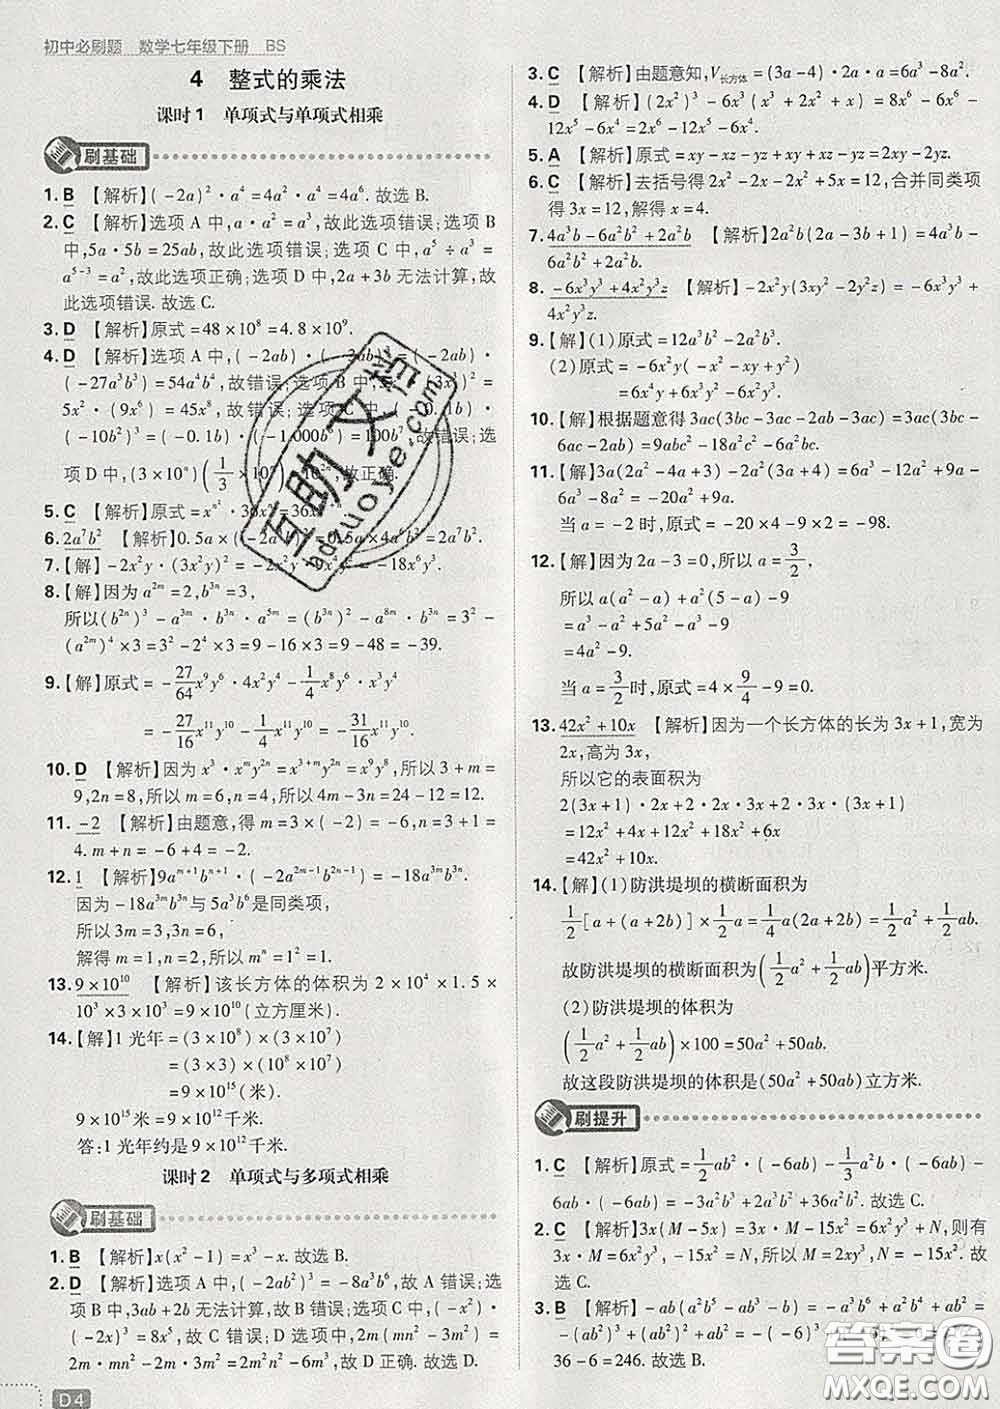 初中必刷题 数学七年级下册 BS
4 整式的乘法
课时1 单项式与单项式相乘
刷基础
1. B 【解析】(-2a)²·a⁴=4a²·a⁴=4a⁶. 故选 B.
2. C 【解析】选项 A 中,a·a²=a³,故此选项错误;选项 B
中,5a·5b=25ab,故此选项错误;选项 C 中,a⁵÷a³=
a⁵⁻³=a²,故此选项正确;选项 D 中,2a+3b 无法计算,故
此选项错误. 故选 C.
3. D 【解析】原式=48×10⁸=4.8×10⁹.
4. D 【解析】选项 A 中,(-2ab)·(-3ab)³=(-2ab)·
(-27a³b³)=54a⁴b⁴,故错误;选项 B 中,
5x²·(9x⁶)=45x⁸,故错误;选项 C 中,(-0.1b)·
(-10b²)³=(-0.1b)·(-1 000b⁶)=100b⁷,故错误;选
项 D 中,(3×10ⁿ)(1/3×10ⁿ)=10²ⁿ,故正确.
5. C 【解析】原式=
6. 2a⁷b² 【解析】0.5a×(-2a³b)²=0.5a×4a⁶b²=2a⁷b².
7.【解】-2x²y·(3x²y)²=-2x²y·9x⁴y²=-18x⁶y³.
8.【解】因为 a²ᵐ=2,b³ⁿ=3,
所以(b²ⁿ)³-a³ᵐ·b³ⁿ·a⁵ᵐ=(b³ⁿ)²-a⁸ᵐ·b³ⁿ=3²-
(a²ᵐ)⁴×3=3²-2⁴×3=9-16×3=9-48=-39.
9.【解】原式=-27/64x⁹y⁶·4x²y⁴-1/4x⁸y⁶·x³y⁴
=-27/16x¹¹y¹⁰-1/4x¹¹y¹⁰=-31/16x¹¹y¹⁰.
10. D 【解析】因为 x³·xᵐy²ⁿ=x³⁺ᵐy²ⁿ=x⁹y⁸,所以 3+m=
9,2n=8,所以 m=6,n=4,所以 4m-3n=24-12=12.
11. -2 【解析】由题意,得 m=3×(-2)=-6,n=3+1=
4. m+n=-6+4=-2.
12. 1 【解析】9aᵐ⁺¹bⁿ⁺¹·(-2a²ᵐ⁻¹b²ⁿ⁻¹)=-18a³ᵐb³ⁿ.
因为-18a³ᵐb³ⁿ与 5a³b⁶是同类项,
所以 3m=3,3n=6,
解得 m=1,n=2. 所以 mⁿ=1²=1.
13. 9×10¹⁰ 【解析】该长方体的体积为 2×10⁴×1.5×
10³×3×10³=9×10¹⁰(立方厘米).
14.【解】1 光年=(3×10⁸)×(3×10⁷)
=(3×3)×(10⁸×10⁷)
=9×10¹⁵(米).
9×10¹⁵米=9×10¹²千米.
答:1 光年约是 9×10¹²千米.
课时2 单项式与多项式相乘
刷基础
1. B 【解析】x(x²-1)=x³-x. 故选 B.
2. D 【解析】选项 A 中,(-2ab²)³=-8a³b⁶,故 A 错误;选
项 B 中,3ab+2b 无法计算,故 B 错误;选项 C 中,(-x²)·
(-2x)³=8x⁵,故 C 错误;选项 D 中,2m(mn²-3m)=
2m·mn²-2m·3m=2m²n²-6m²,故 D 正确. 故选 D.
D4
3. C 【解析】由题意知,V长方体=(3a-4)·2a·a=6a³-8a².
4. D 【解析】(2x²)³-6x³(x³+2x²+x)=8x⁶-6x⁶-
12x⁵-6x⁴=2x⁶-12x⁵-6x⁴.
5. A 【解析】原式=xy-xz-yz+xy+xz-yz=2xy-2yz.
6. C 【解析】去括号得 2x²-2x-2x²+5x=12,合并同类项
得 3x=12,解得 x=4.
7. 4a³b-6a²b²+2a²b 【解析】2a²b(2a-3b+1)=4a³b-
6a²b²+2a²b.
8. -6x³y³+4x²y³z 【解析】-2x²y(3xy²-2y²z)=-6x³y³+
4x²y³z.
9.【解】(1)原式=12a³b²-2a²b².
(2)原式=-6x²y(-x²-xy+y²)
=6x⁴y+6x³y²-6x²y³.
10.【解】根据题意得 3ac(3bc-3ac-2ab-3ac)=3ac(3bc-
6ac-2ab)=9abc²-18a²c²-6a²bc.
11.【解】3a(2a²-4a+3)-2a²(3a+4)=6a³-12a²+9a-
6a³-8a²=-20a²+9a.
当 a=-2 时,原式=-20×4-9×2=-98.
12.【解】因为 2a-3=0,所以 a=3/2,
所以 a(a²-a)+a²(5-a)-9
=a³-a²+5a²-a³-9
=4a²-9.
当 a=3/2时,原式=4×9/4-9=0.
13. 42x²+10x 【解析】因为一个长方体的长为 3x+1,宽为
2x,高为 3x,
所以它的表面积为
2(3x+1)·2x+2×2x·3x+2×3x·(3x+1)
=12x²+4x+12x²+18x²+6x
=42x²+10x.
14.【解】(1)防洪堤坝的横断面积为
1/2[a+(a+2b)]×1/2a=1/4a(2a+2b)=1/2a²+1/2ab.
故防洪堤坝的横断面积为(1/2a²+1/2ab)平方米.
(2)防洪堤坝的体积为
(1/2a²+1/2ab)×100=50a²+50ab.
故这段防洪堤坝的体积是(50a²+50ab)立方米.
刷提升
1. C 【解析】原式=1/2ab²·(-6ab)-1/3a²b·(-6ab)-
6ab·(-6ab)=-3a²b³+2a³b²+36a²b². 故选 C.
2. C 【解析】3x(M-5x)=3x·M-15x²=6x²y³+N,则有
3x·M=6x²y³,-15x²=N,所以 M=2xy³,N=-15x². 故
选 C.
3. B 【解析】-ab(a²b⁵-ab³-b)=-a³b⁶+a²b⁴+ab²=
-(ab²)³+(ab²)²+ab²=-(-6)³
36-6=246. 故选 B.
互助文档
hdzuoye.com
答案圈
MXQE.COM